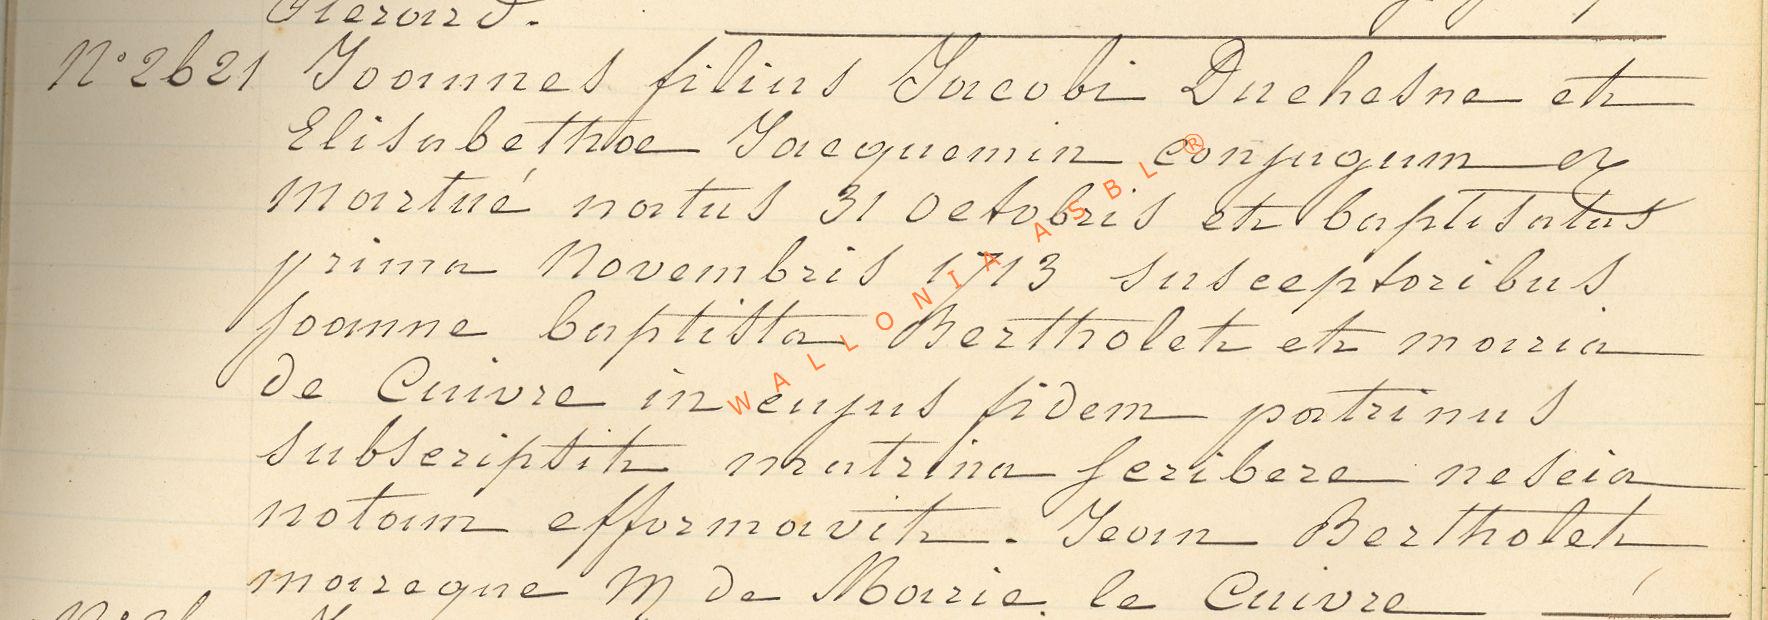 Clerard.
N° 2621 Joannes filius Jacobi Duchesne et
Elisabethæ Jacquemin conjugum ex
Martué natus 31 octobris et baptisatus
prima Novembris 1713 susceptoribus
Joanne baptista Bertholet et maria
de Cuivre in cujus fidem patrinus
subscriptit matrina scribere nescia
notam efformavit. Jean Bertholet
marcque M de Marie le Cuivre
WALLONIA ASBL ®